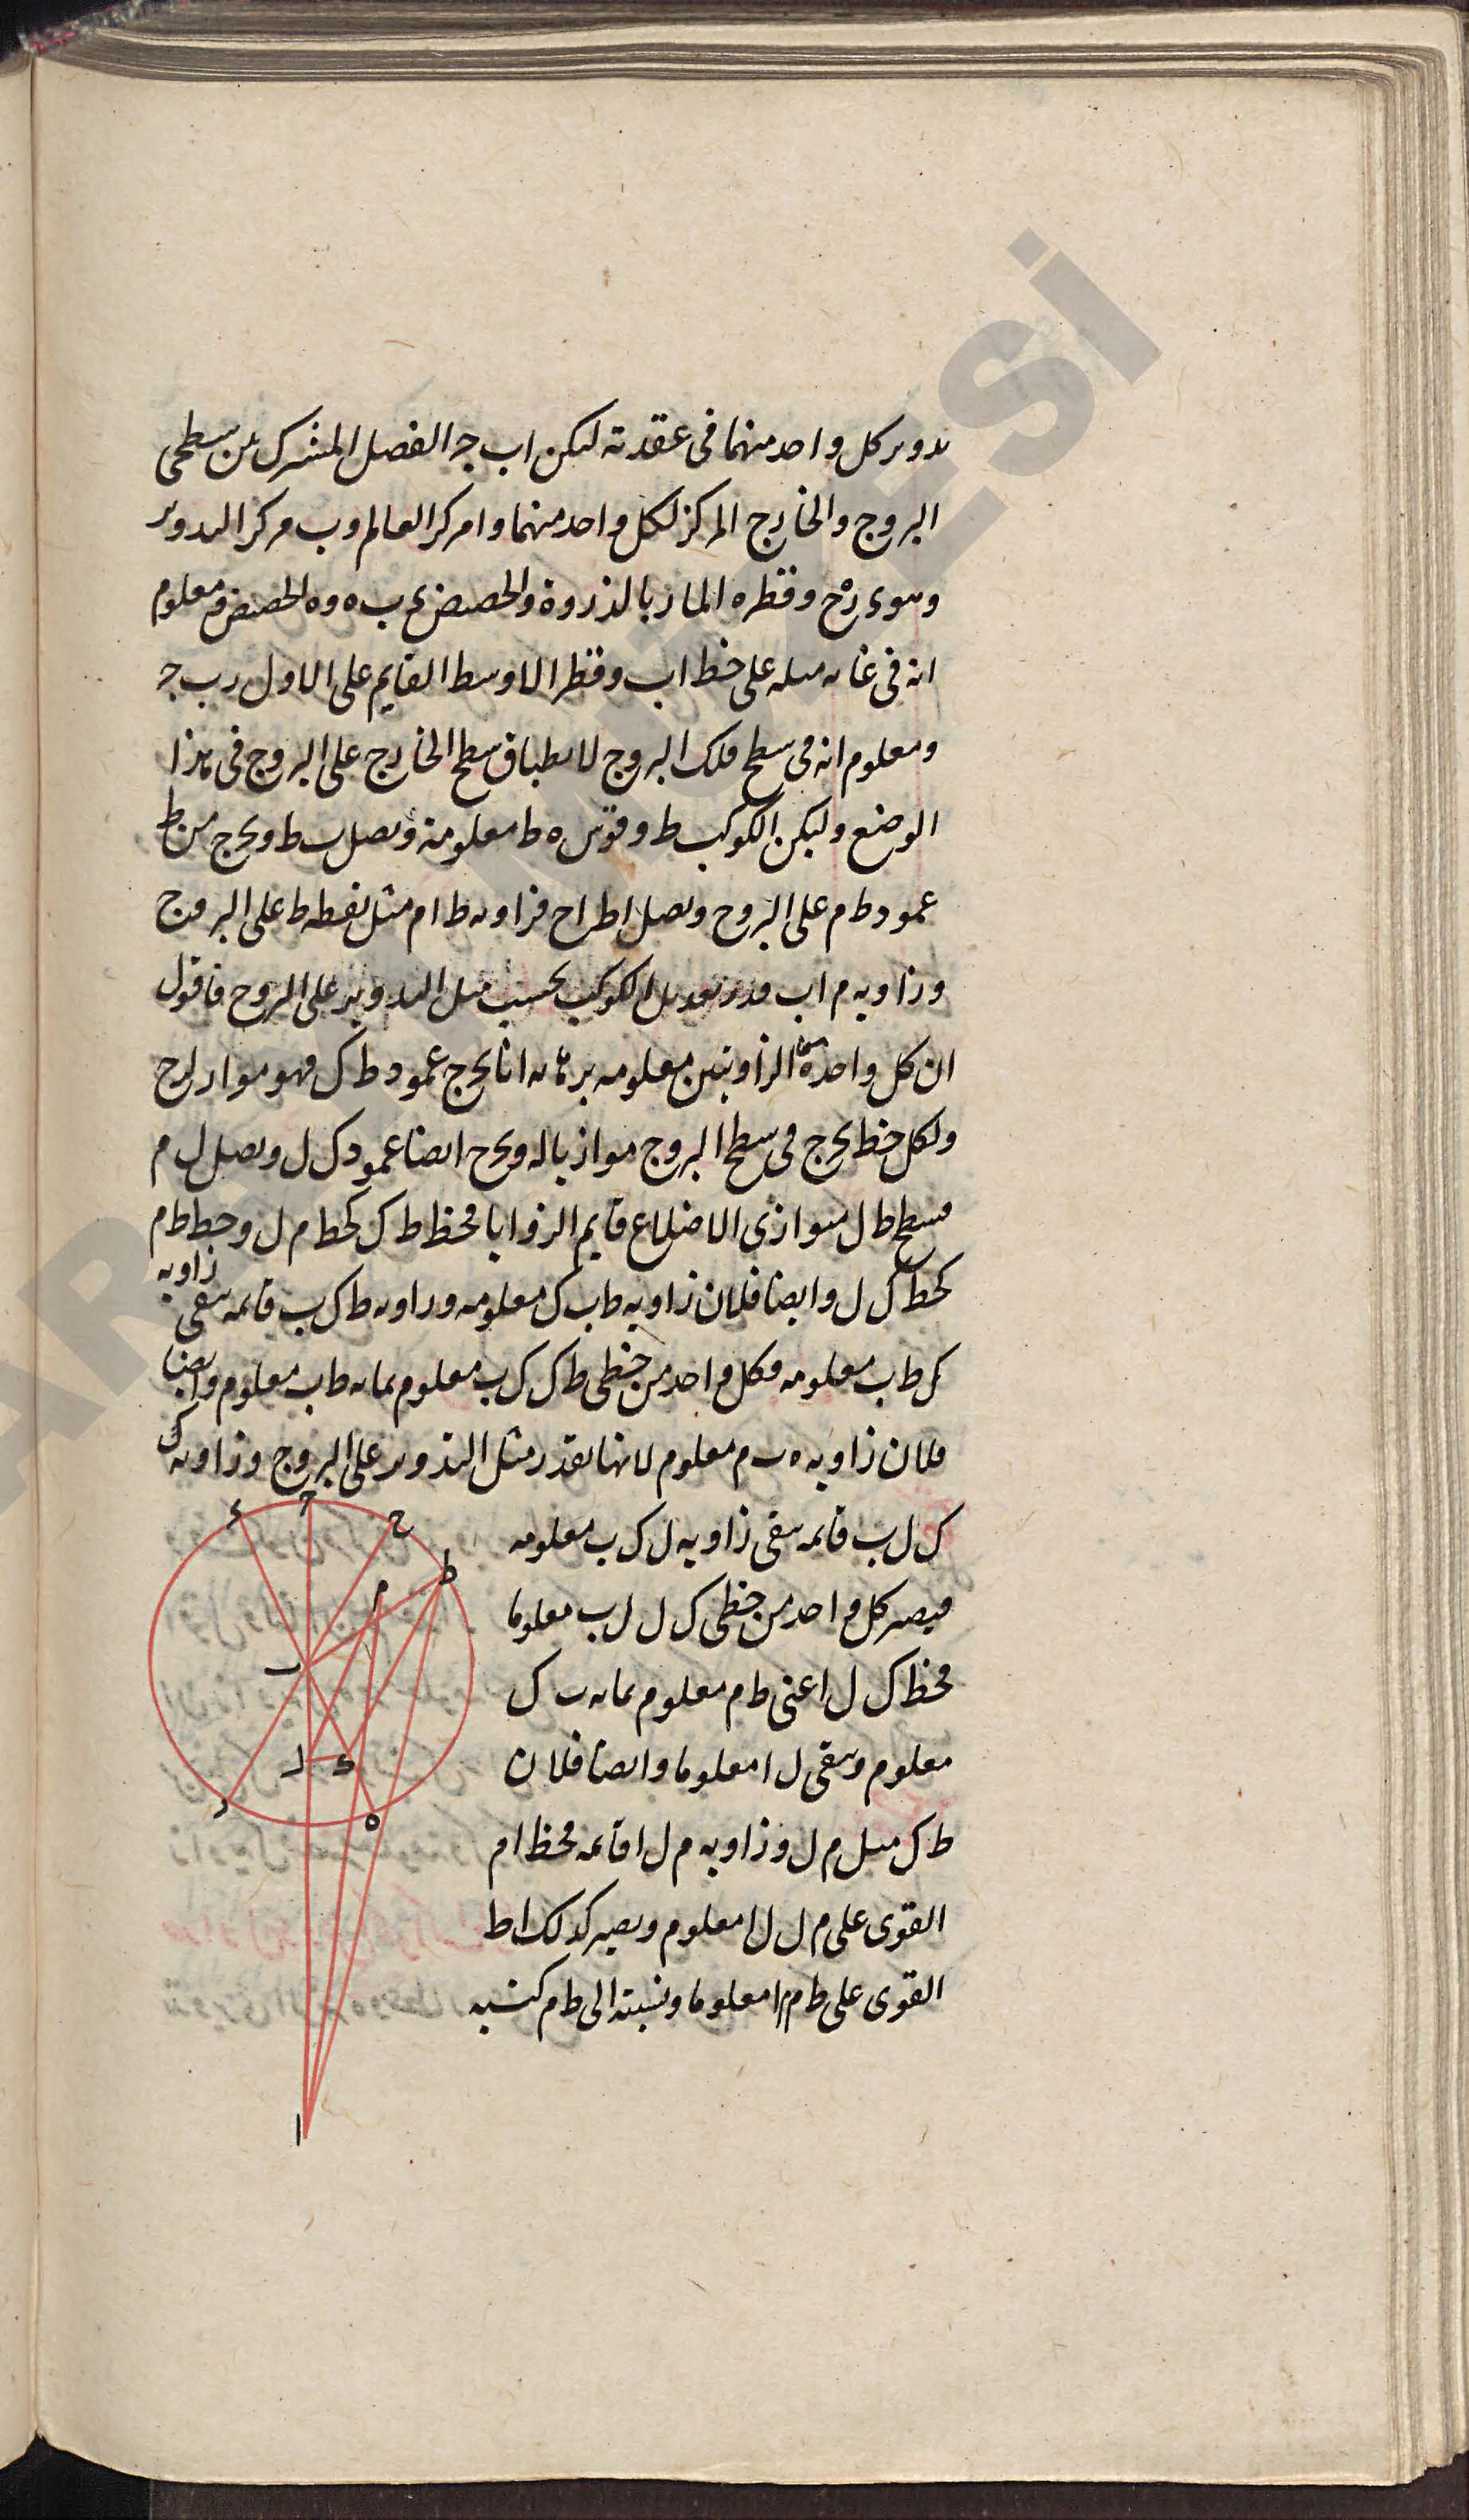 تدوير كل واحد منهما فى عقدته ليكن اب جـ الفصل المشترك بين سطحى
البروج والخارج المركز لكل واحد منهما و ا مركز العالم وب مركز التدوير
وهو ء ر ح وقطره المار بالذروة والحضيض ء ب ه و ه الحضيض فمعلوم
انه فى غاية ميله على خط اب وقطر الاوسط القايم على الاول ر ب جـ
ومعلوم انه فى سطح فلك البروج لانطباق سطح الخارج على البروج فى هذا
الوضع وليكن الكوكب ط وقوس ه ط معلومة ونصل ب ط ونخرج من ط
عمود ط م على البروج ونصل اط اح فزاويه ط ا م مثل نقطه ط على البروج
وزاويه م اب قدر تعديل الكوكب بحسب ميل التدوير على البروج فاقول
ان كل واحدة من الزاويتين معلومه برهانه انا نخرج عمود ط ك فهو مواز لرح
ولكل خط يخرج فى سطح البروج موازيا له ونخرج ايضا عمود ك ل ونصل ل م
فسطح ط ل متوازى الاضلاع قايم الزوايا فخط ط ك كخط م ل وخط ط م
كخط ك ل وايضا فلان زاويه ط ب ك معلومه وزاويه ط ك ب قائمه تبقى زاويه
ك ط ب معلومه فكل واحد من خطى ط ك ك ب معلوم بما به ط ب معلوم وايضا
فلان زاويه ه ب م معلوم لانها بقدر مثل التدوير على البروج وزاويه ك
ك ل ب قائمه تبقى زاويه ل ك ب معلومه
فيصير كل واحد من خطى ك ل ل ب معلوما
فخط ك ل اعنى ط م معلوم بما به ب ك
معلوم ويبقى ل ا معلوما وايضا فلان
ط ك مثل م ل وزاويه م ل ا قائمه فخط ا م
القوى على م ل ل ا معلوم ويصير كذلك اط
القوى على ط م م ا معلوما ونسبته الى ط م كنسبه
ء جـ ح
ط
م
ب
ل ك
ر ه
ا